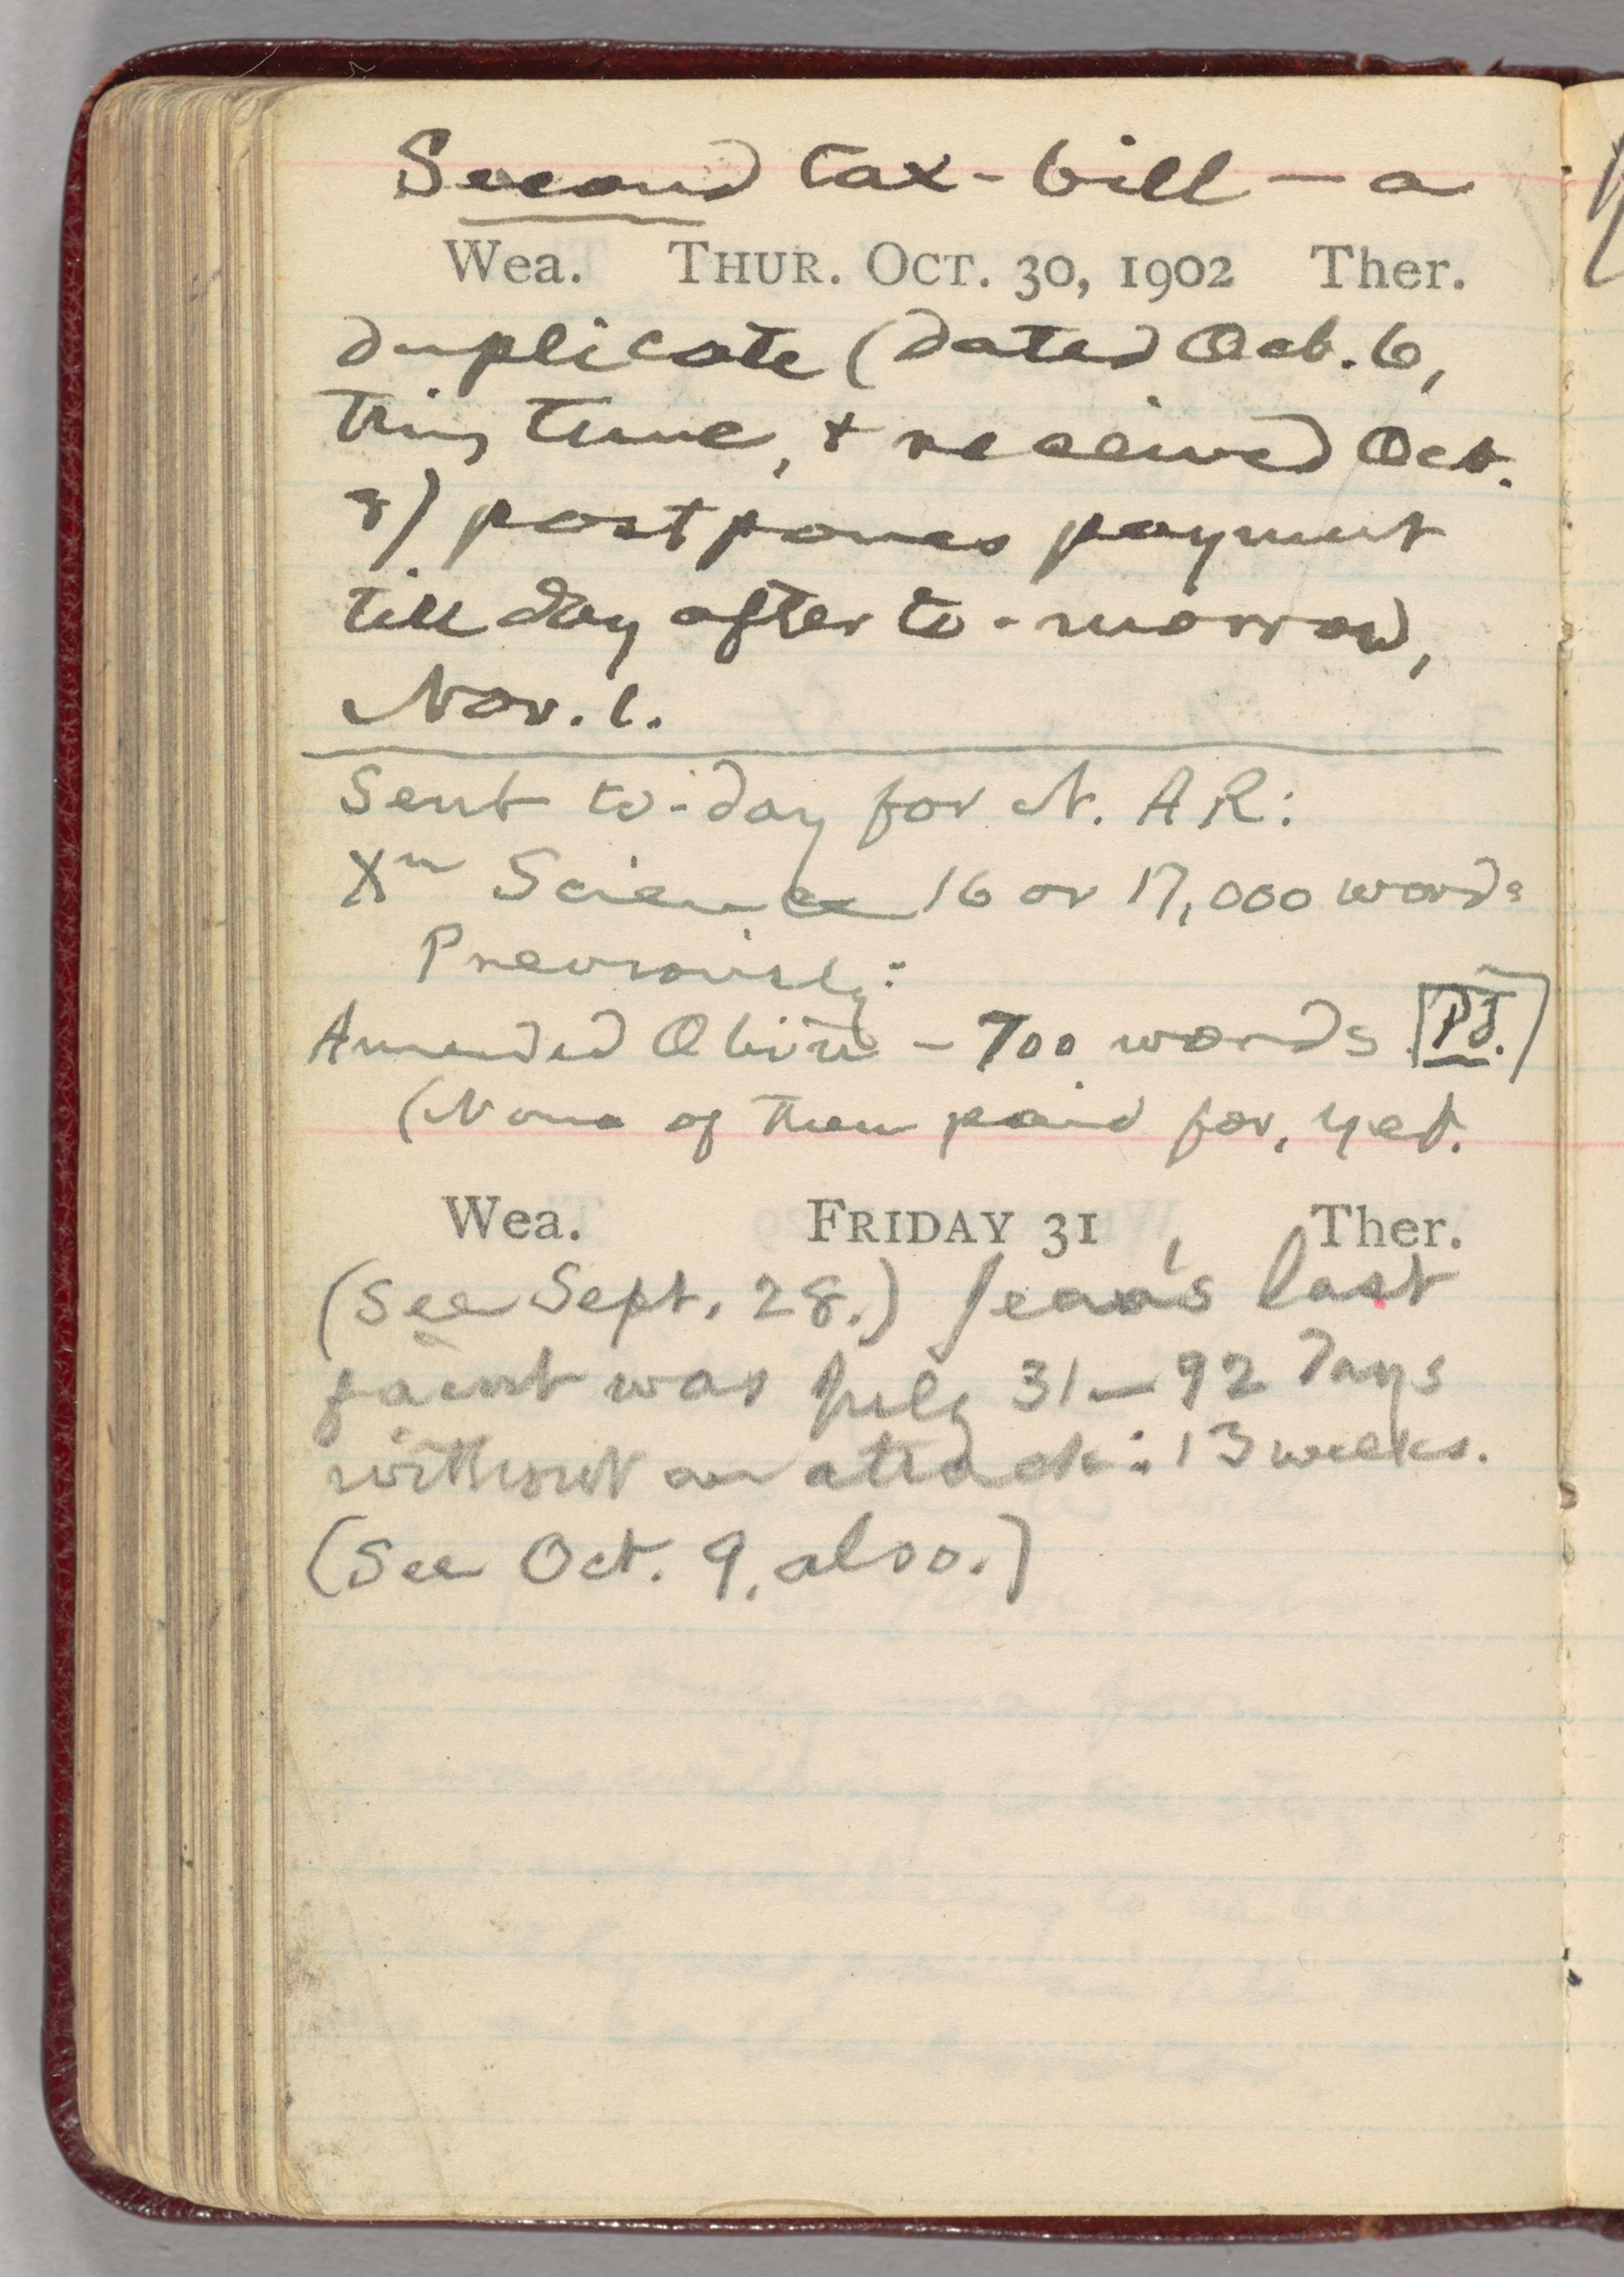 Second tax-bill — a
Wea. THUR. OCT. 30, 1902 Ther.
duplicate (dated Oct. 6,
this time, & received Oct.
8) postpones payment
till day after to-morrow,
Nov. 1.
Sent to-day for N. A R:
Xn Science 16 or 17,000 words
Previously:
Amended Obitu – 700 words [Pd.]
(None of them paid for, yet.
Wea. FRIDAY 31 Ther.
(See Sept. 28.) Jean's last
faint was July 31—92 days
without an attack: 13 weeks.
(See Oct. 9, also.)